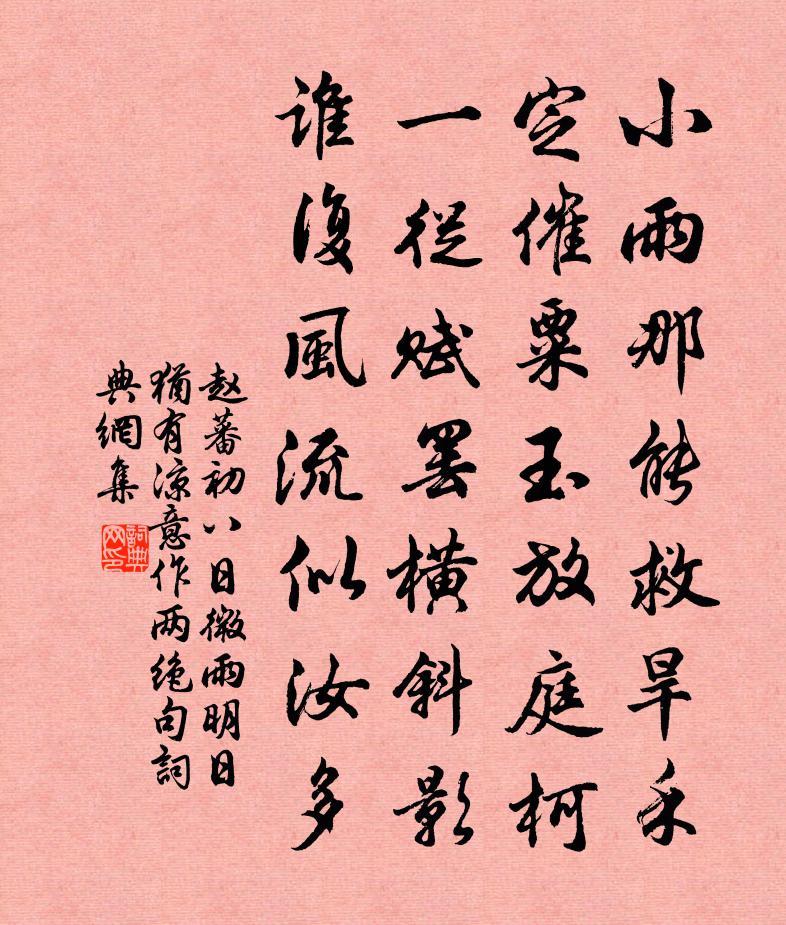 小雨那能救旱禾
定催粟玉放庭柯
一從賦罢橫斜影
誰復風流似汝多
赵蕃初八日微雨明日
猶有凉意作两绝句詞
典網集
詞典网印